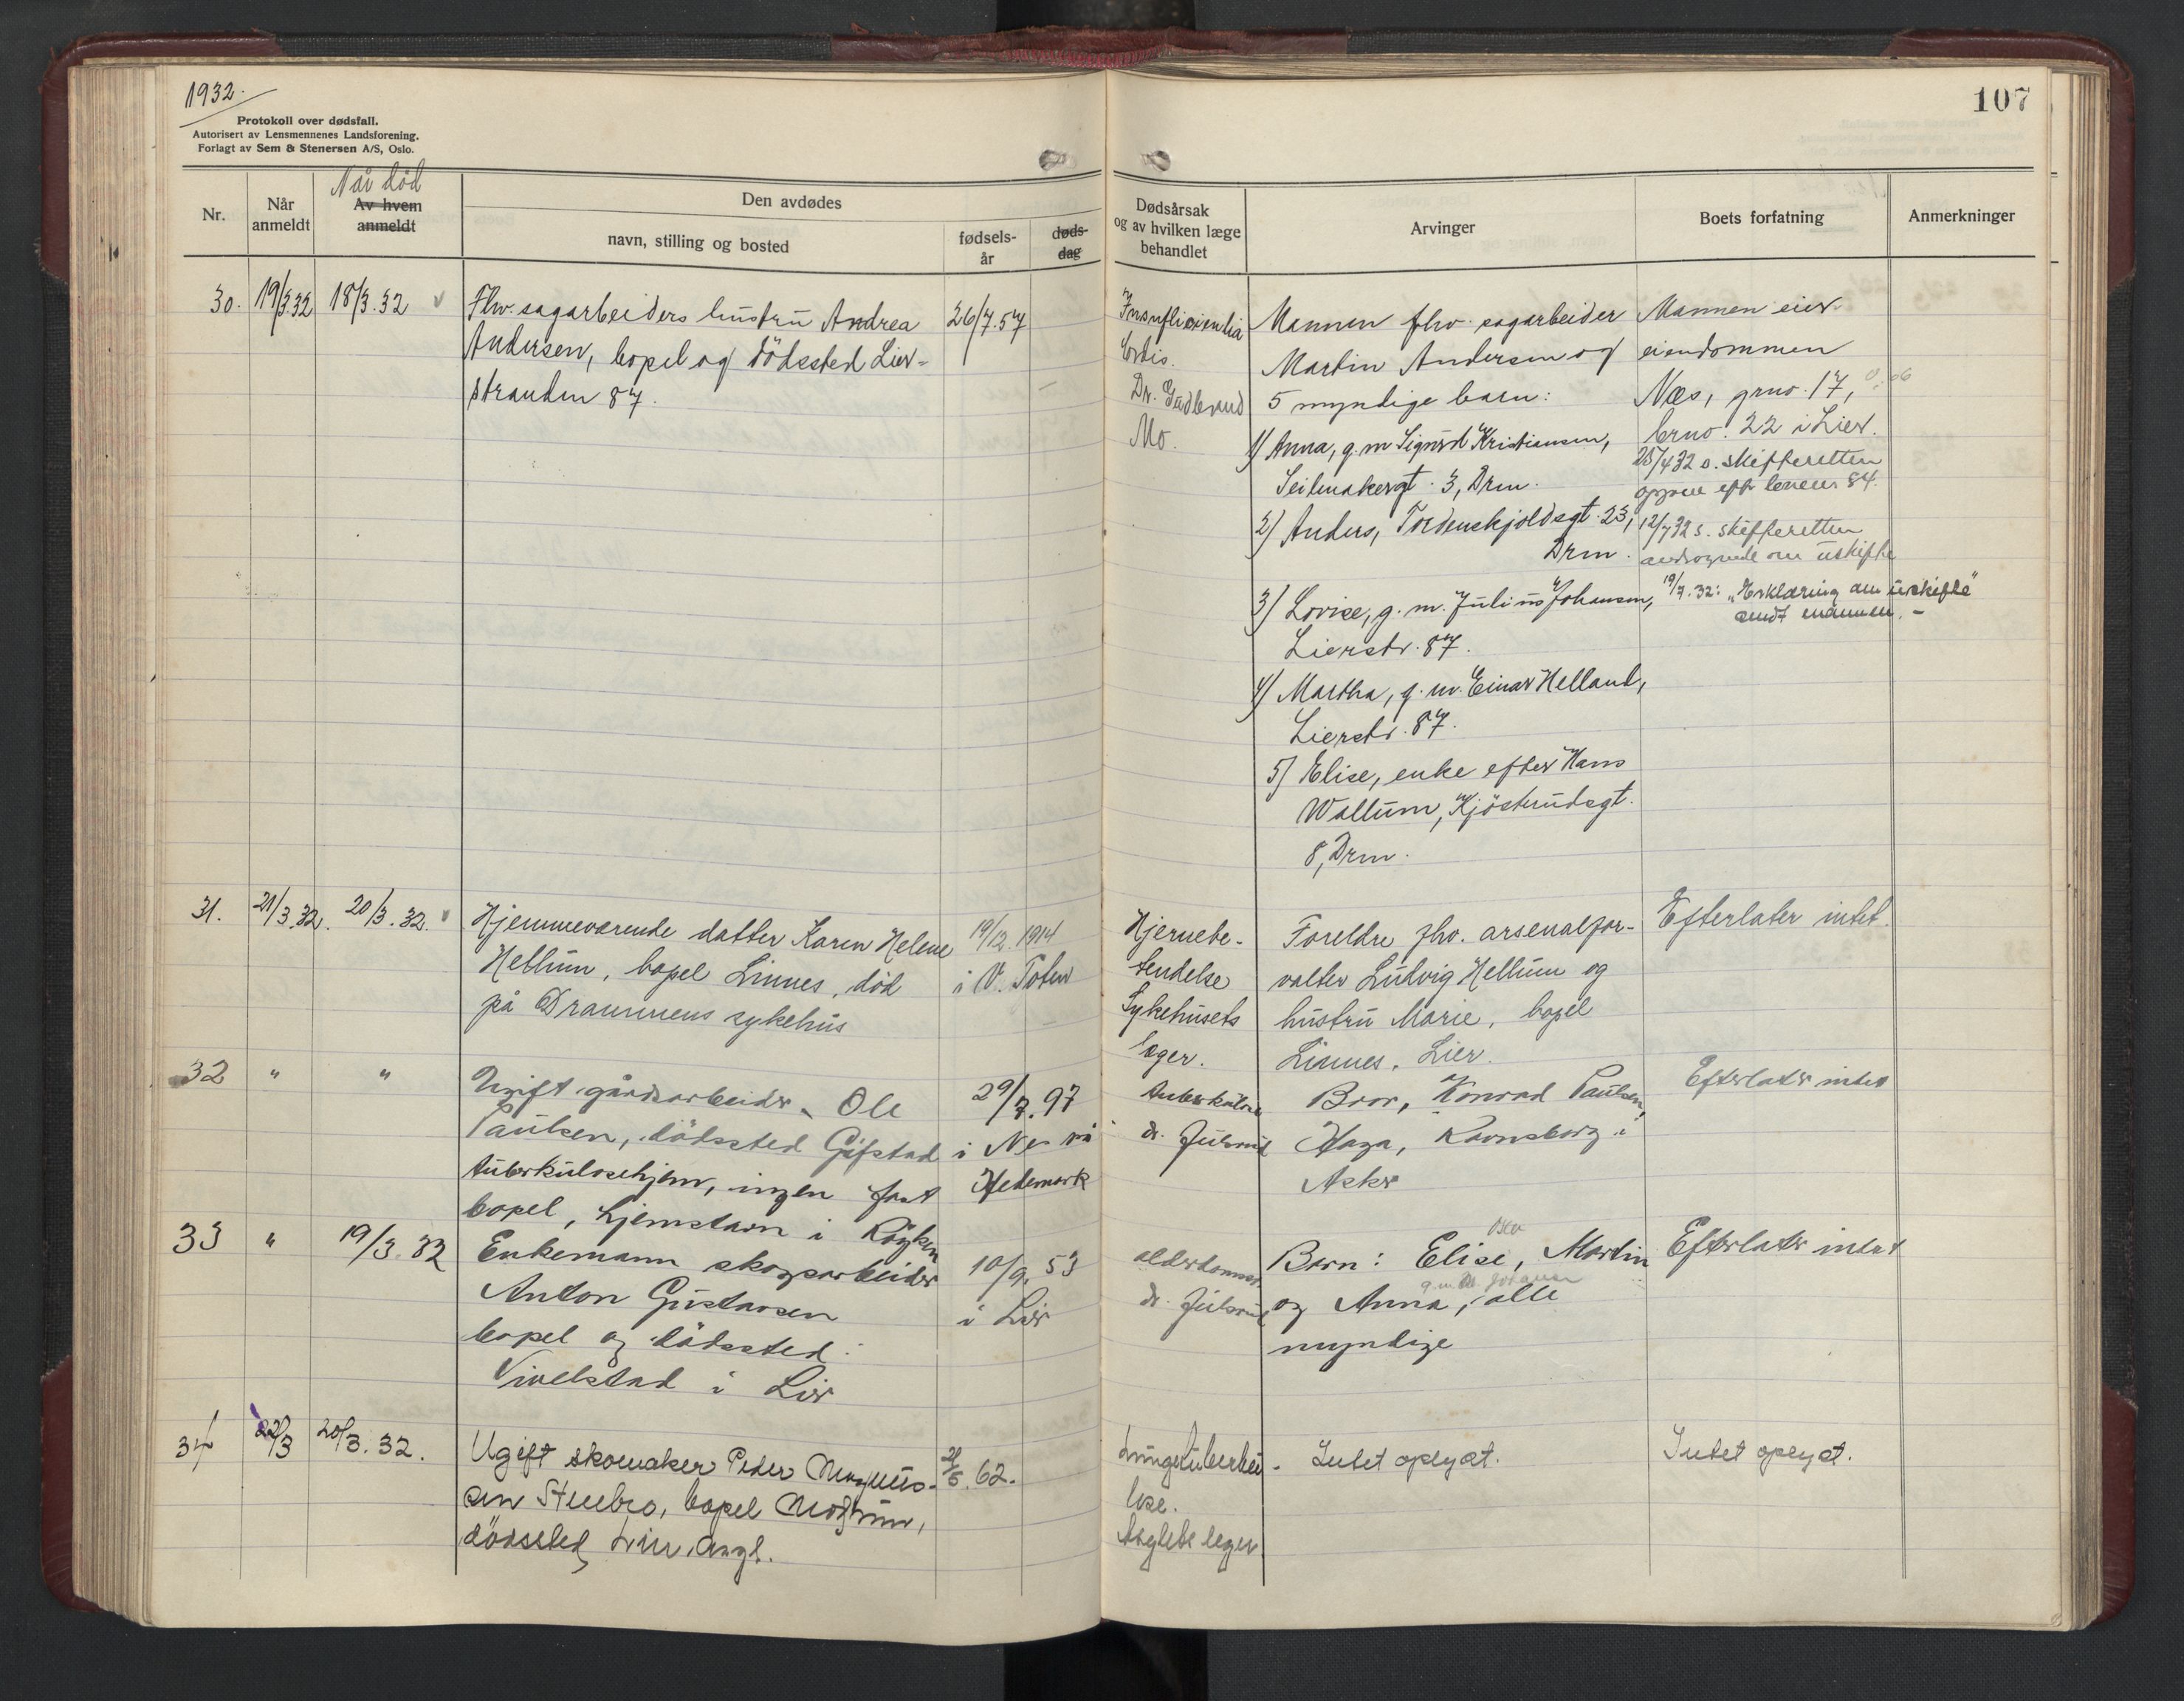 1932.
107
Protokoll over dødsfall.
Autorisert av Lensmennenes Landsforening.
Forlagt av Sem & Stenersen A/S, Oslo.
Nr.
Når anmeldt
Når død
Av hvem anmeldt
Den avdødes
navn, stilling og bosted
fødsels-
år
døds-
dag
Dødsårsak
og av hvilken læge
behandlet
Arvinger
Boets forfatning
Anmerkninger
30. 19/3.32 18/3.32
Fhv. sagarbeiders hustru Andrea
Andersen, bopel og dödssted Lier-
stranden 87.
26/7.57
Cordis.
Dr. Gudbrand
Mo.
Mannen fhv. sagarbeider
Martin Andersen og
5 myndige barn:
1) Anna, g.m. Sigurd Kristiansen,
Seilmakergt. 3, Drm.
2) Anders, Tordenskjoldsgt. 23,
Drm.
3) Lovise, g.m. Julius Johansen,
Lierstr. 87.
4) Martha, g.m. Einar Helland,
Lierstr. 87.
5) Elise, enke efter Hans
Wallum, Kjösterudsgt.
8, Drm.
Mannen eier
eiendommen
Næs, grno. 17,
brno. 22 i Lier.
25/4 32 s. skifteretten
12/7 32 s. skifteretten
om uskifte
19/7.32: "Erklæring om uskifte"
sendt mannen. -
31. 21/3.32. 20/3.32.
Hjemmeværende datter Karen Helene
Hellum, bopel Linnes, död
på Drammens sykehus
19/12.1914
i V. Toten
Hjernebe-
tendelse
Sykehusets
læger.
Foreldre fhv. arsenalfor-
valter Ludvig Hellum og
hustru Marie, bopel
Linnes, Lier.
Efterlater intet.
32 " "
Ugift gårdsarbeider Ole
Paulsen, dödssted Gifstad
tuberkulosehjem, ingen fast
bopel, hjemstavn i Röyken
29/7.97
i Nes på
Hedemark
Tuberkulose
dr. Julsrud
Bror, Konrad Paulsen,
Haga, Ravnsborg i
Asker
Efterlater intet
33 " 19/3.32
Enkemann skogsarbeider
Anton Gustavsen
bopel og dödssted:
Vivelstad i Lier
10/9.53
i Lier
alderdomssv.
dr. Julsrud
Barn: Elise, Martin
og Anna, alle
g.m. Johansen
myndige
Efterlater intet
34 22/3 20/3.32.
Ugift skomaker Peder Magnus-
sen Stubro, bopel Modum,
dödssted Lier Asyl.
21/5.62.
Lungetuberku-
lose.
Asylets leger
Intet oplyst.
Intet oplyst.